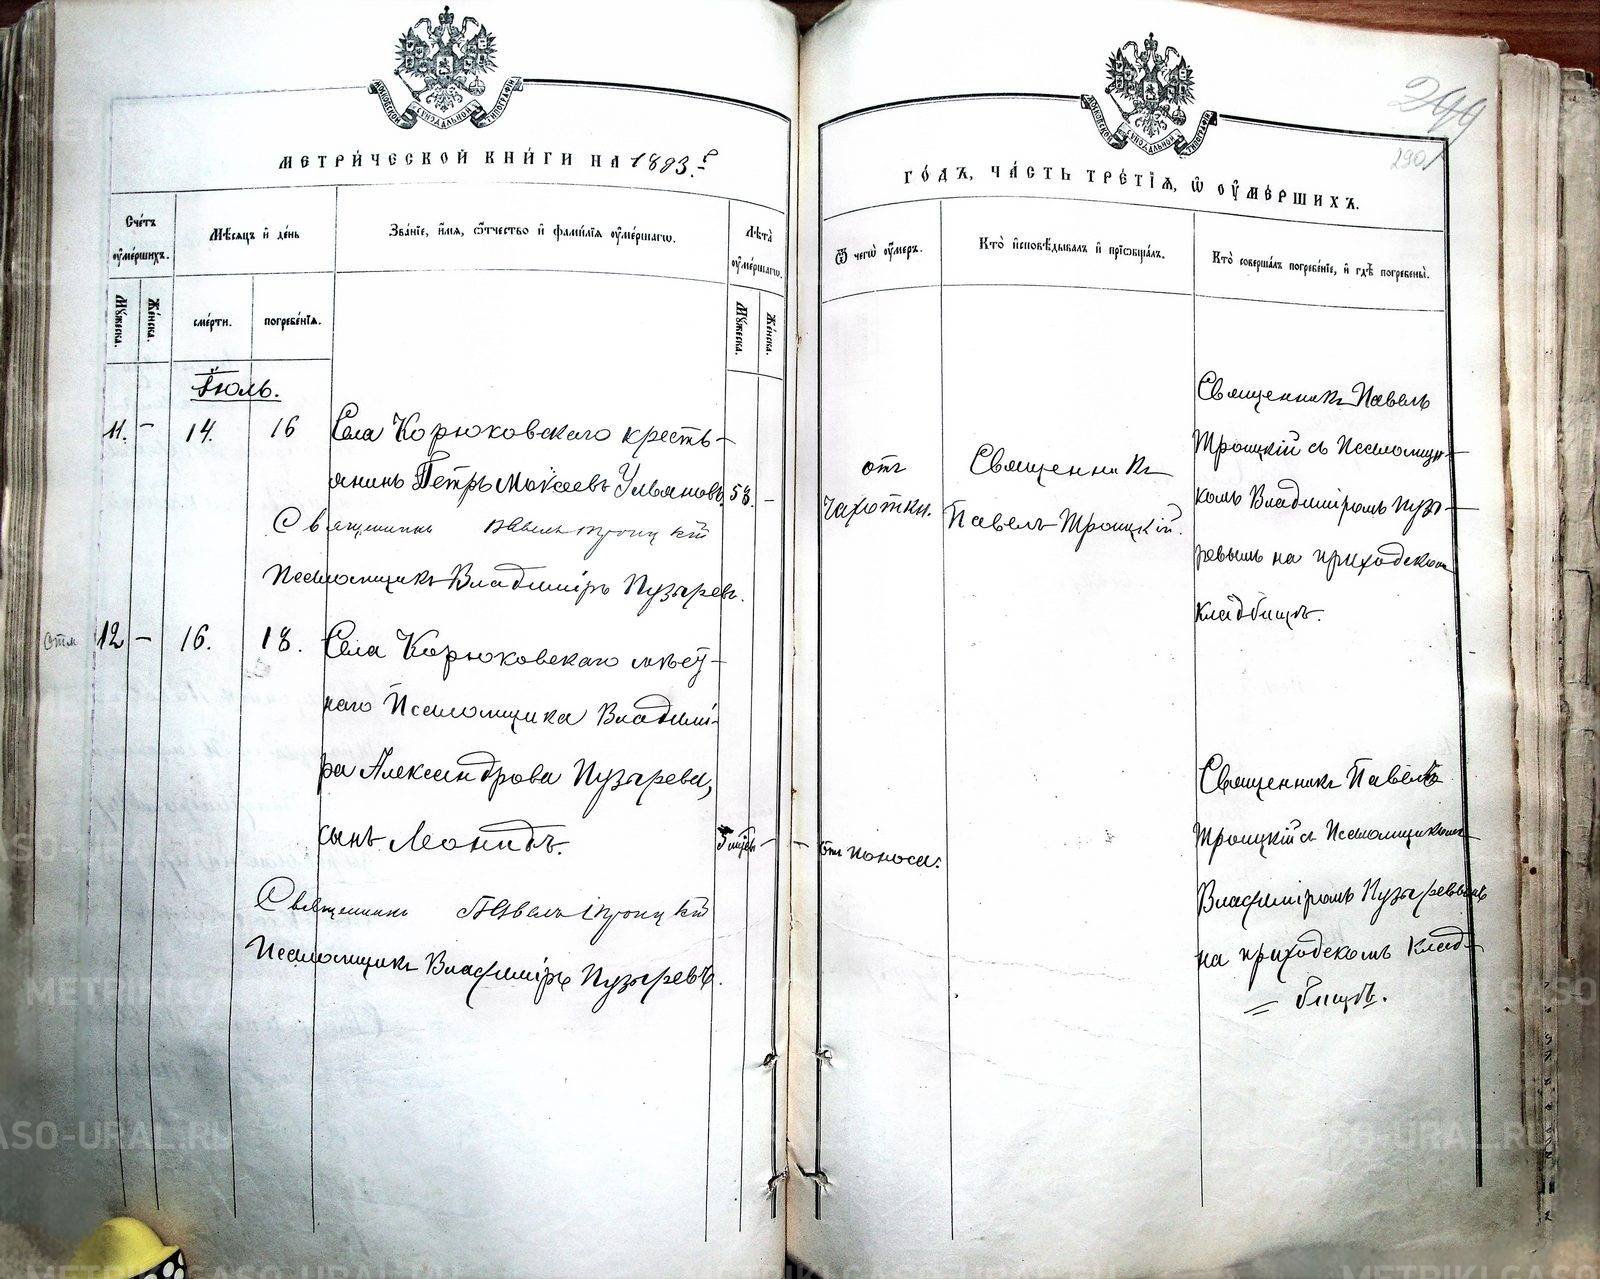 МОСКОВСКОЙ СѴНОДАЛЬНОЙ ТИПОГРАФІИ
МЕТРИ́ЧЕСКОЙ КНИ́ГИ НА 1893 г.
Сче́тъ ᲂу҆ме́ршихъ.
Мѣ́сяцъ и҆ де́нь
Зва́нїе, и҆́мя, ѻ҆́тчество и҆ фами́лїя ᲂу҆ме́ршагѡ.
Лѣ́та ᲂу҆ме́ршагѡ.
Мꙋ́жеска.
Же́нска.
сме́рти.
погребе́нїя.
Мꙋ́жеска.
Же́нска.
Іюль.
11. – 14. 16 Села Корюковскаго кресть-
янинъ Петръ Моѵсеевъ Ульяновъ. 58. –
Священникъ Павелъ Троицкій
Псаломщикъ Владиміръ Пузыревъ.
отм 12 – 16. 18. Села Корюковскаго мѣст-
наго Псаломщика Владимі-
ра Александрова Пузырева,
сынъ Леонидъ. 5 мцевъ –
Священникъ Павелъ Троицкій
Псаломщикъ Владиміръ Пузыревъ.
МОСКОВСКОЙ СѴНОДАЛЬНОЙ ТИПОГРАФІИ
299
290
ГО́ДЪ, ЧА́СТЬ ТРЕ́ТЇѦ, Ѡ҆ ОУ҆МЕ́РШИХЪ.
Ѿ чегѡ̀ ᲂу҆́меръ.
Кто̀ и҆сповѣ́дывалъ и҆ прїѡбща́лъ.
Кто̀ соверша́лъ погребе́нїе, и҆ гдѣ̀ погребены̀.
отъ
чахотки.
Священникъ
Павелъ Троицкій.
Священникъ Павелъ
Троицкій съ Псаломщи-
комъ Владиміромъ Пузы-
ревымъ на приходскомъ
кладбищѣ.
– отъ поноса.
Священникъ Павелъ
Троицкій съ Псаломщикомъ
Владиміромъ Пузыревымъ
на приходскомъ клад-
= бищѣ.
METRIKI.GASO-URAL.RU